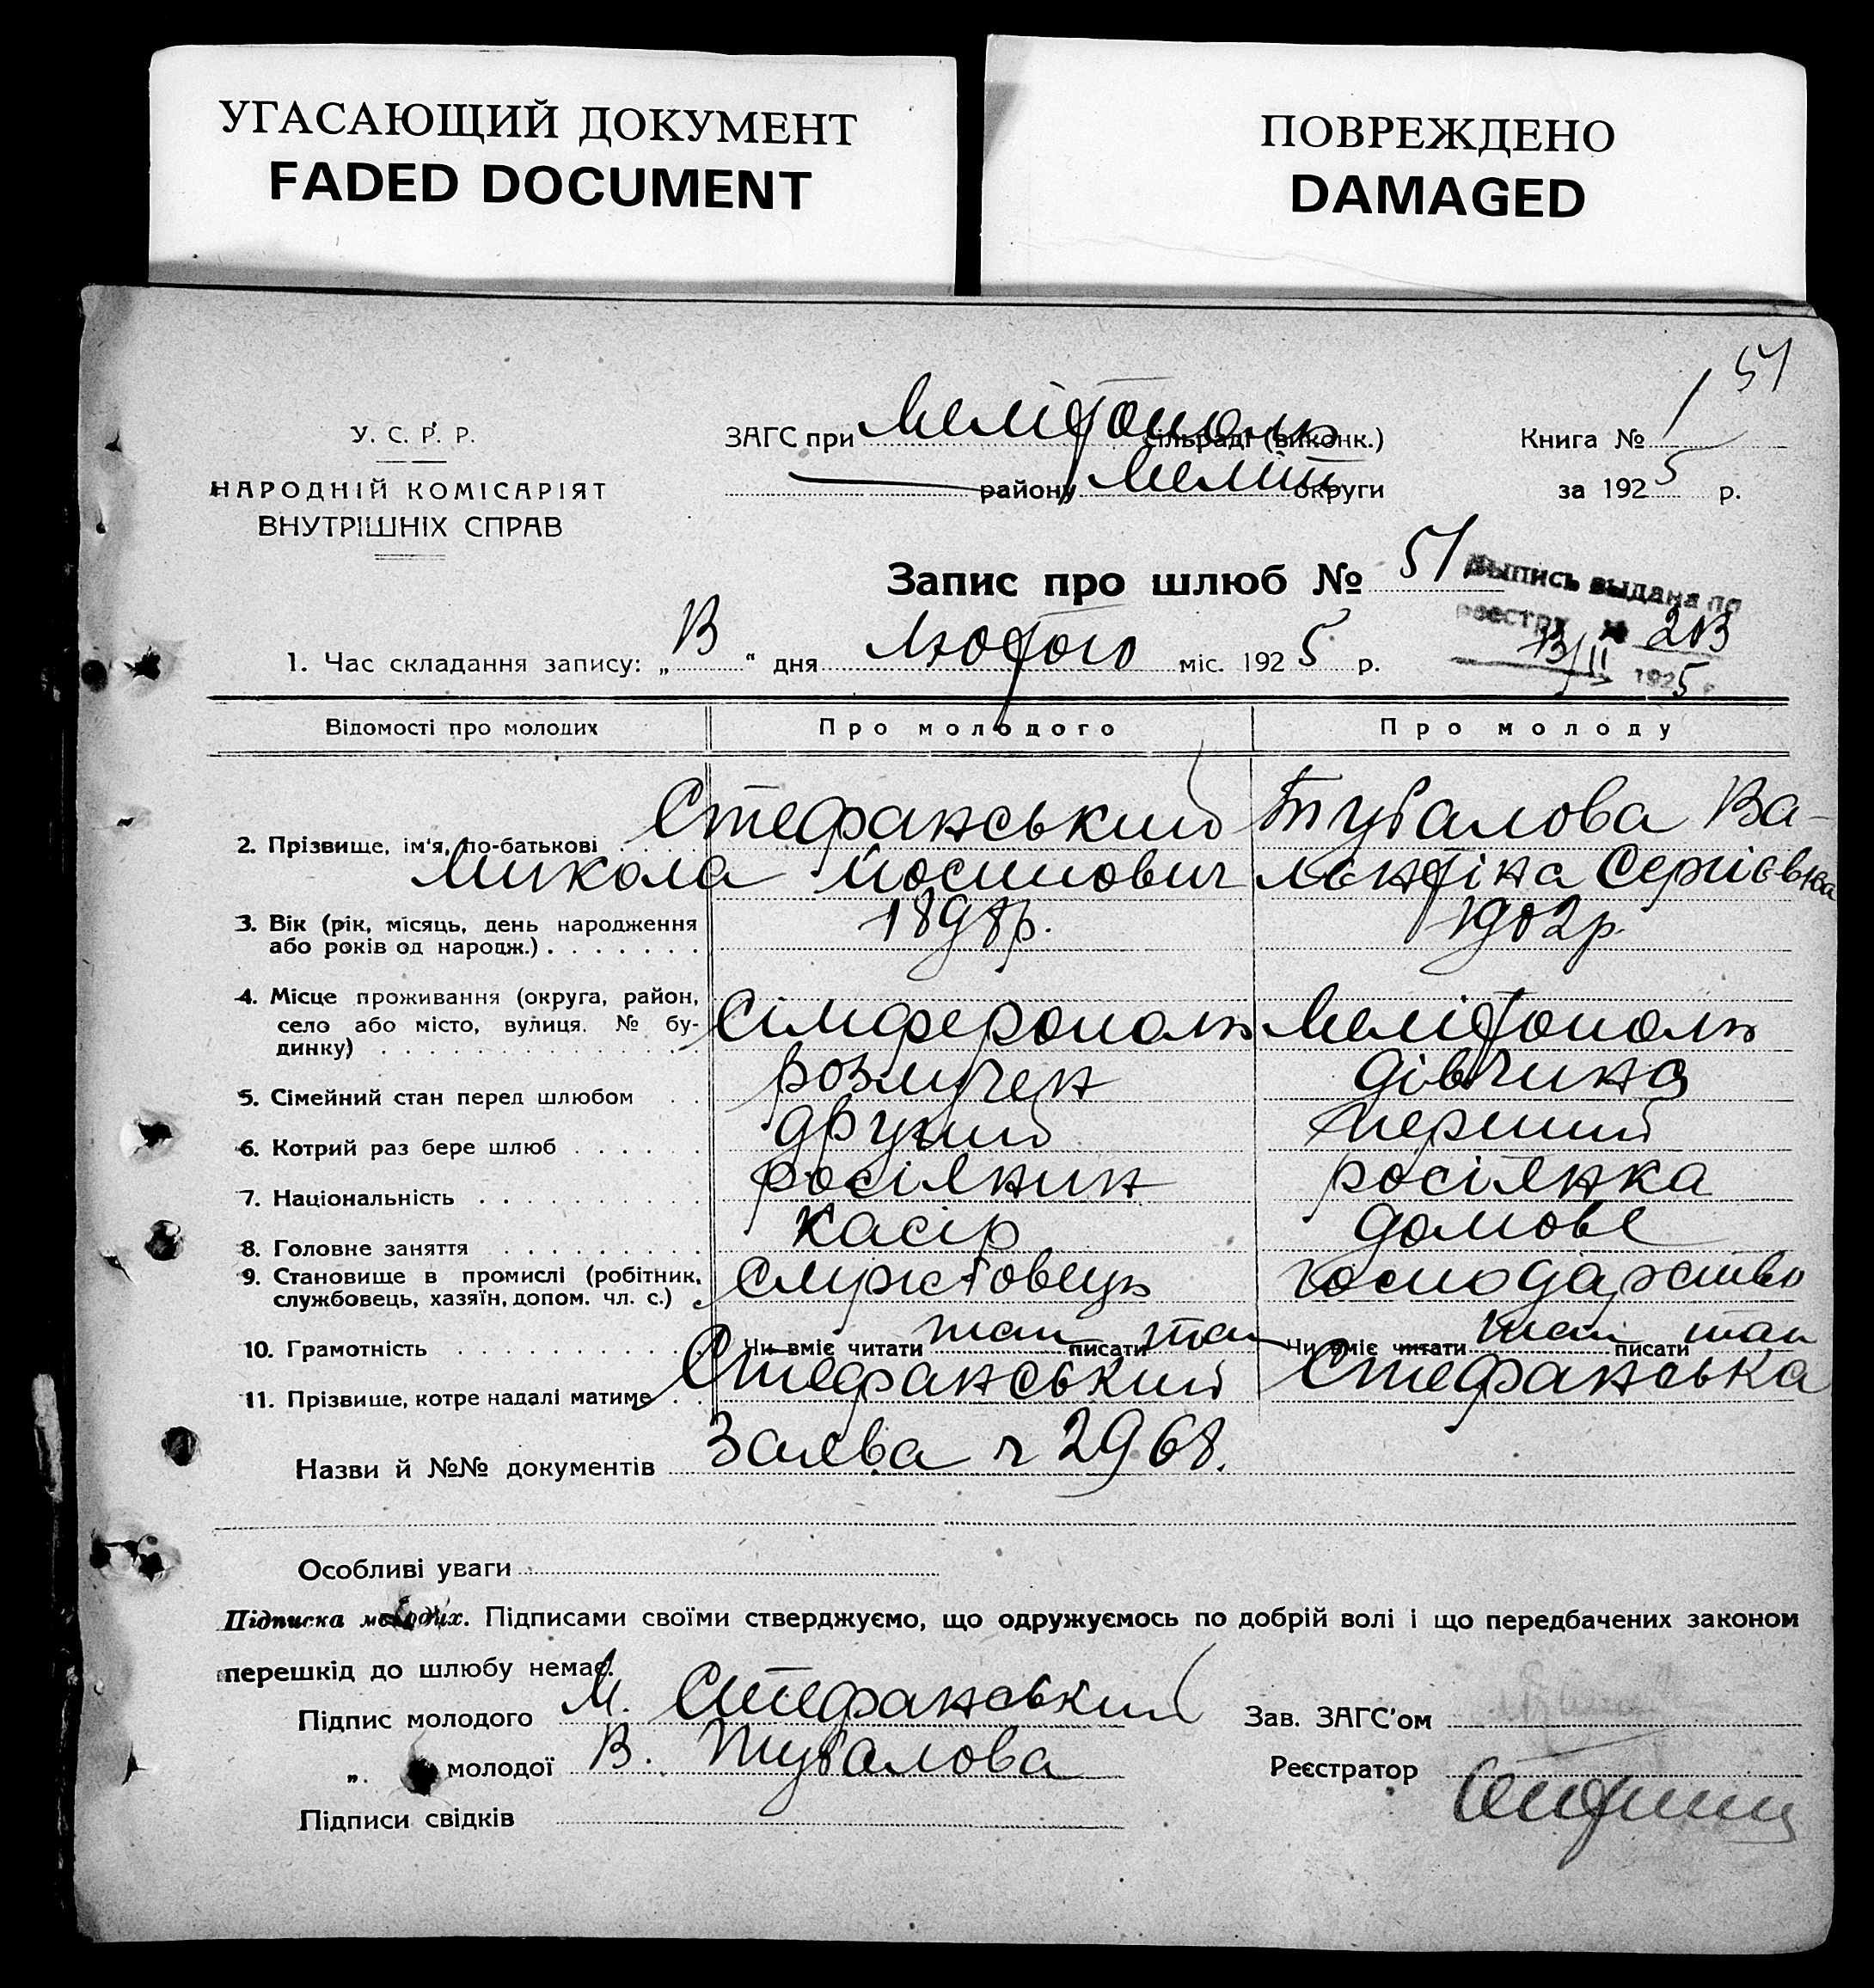 УГАСАЮЩИЙ ДОКУМЕНТ
FADED DOCUMENT
ПОВРЕЖДЕНО
DAMAGED
51
У. С. Р. Р.
НАРОДНІЙ КОМІСАРІЯТ
ВНУТРІШНІХ СПРАВ
ЗАГС при Мелітополь сільраді (виконк.)
району Меліт округи
Книга № 1
за 1925 р.
Запис про шлюб № 51.
Выпись выдана по
реестру № 203
13/II 1925 г
1. Час складання запису: „13“ дня Лютого міс. 1925 р.
Відомості про молодих Про молодого Про молоду
2. Прізвище, ім'я, по-батькові Стефанський Тубалова Ва-
Микола Йосипович лентіна Сергієвна
3. Вік (рік, місяць, день народження 1898р. 1902р.
або років од народж.)
4. Місце проживання (округа, район,
село або місто, вулиця. № бу- Сімферополь Мелітополь
динку)
5. Сімейний стан перед шлюбом розлучен дівчина
6. Котрий раз бере шлюб другий перший
7. Національність росіянин росіянка
8. Головне заняття касір домове
9. Становище в промислі (робітник, службовець господарство
службовець, хазяїн, допом. чл. с.)
10. Грамотність Чи вміє читати так писати так Чи вміє читати так писати так
11. Прізвище, котре надалі матиме Стефанський Стефанська
Назви й №№ документів Заява ч 2968.
Особливі уваги
Підписка молодих. Підписами своїми стверджуємо, що одружуємось по добрій волі і що передбачених законом
перешкід до шлюбу немає.
Підпис молодого М. Стефанський Зав. ЗАГС'ом
„ молодої В. Тубалова Реєстратор
Підписи свідків